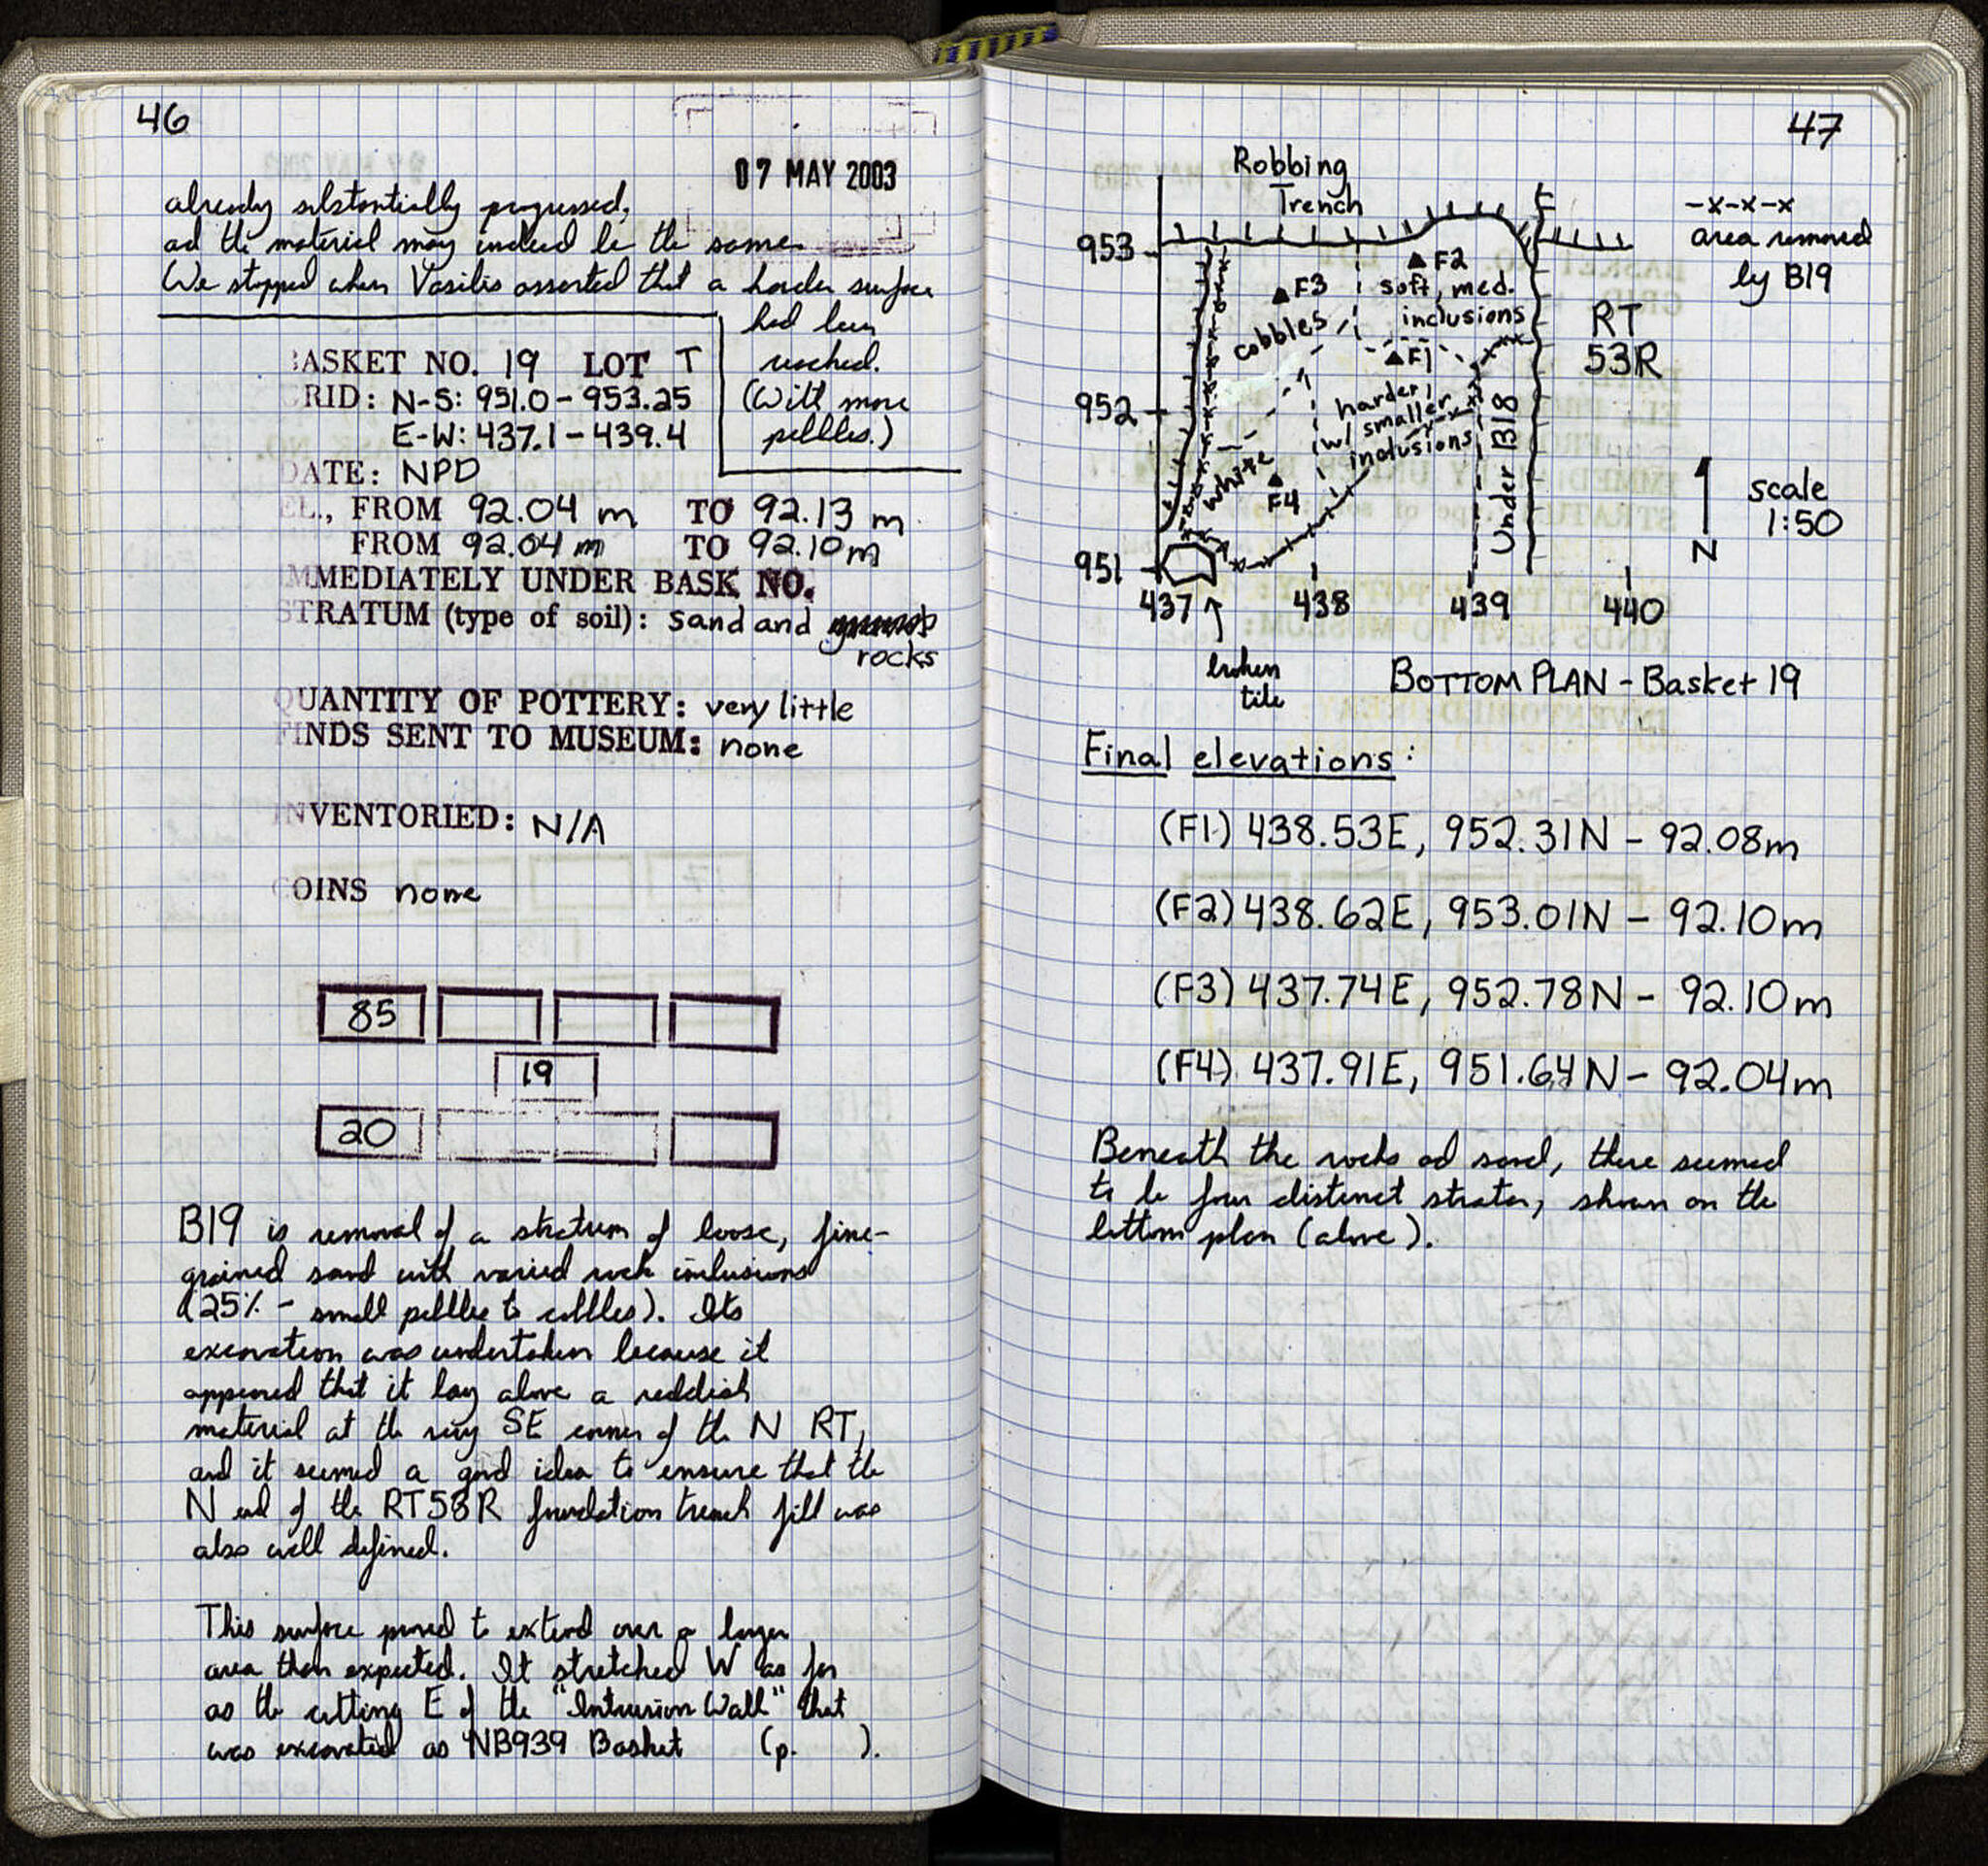 46
07 MAY 2003
already substantially progressed,
and the material may indeed be the same.
We stopped when Vasilis asserted that a harder surface
had been
reached.
(With more
pebbles.)
BASKET NO. 19 LOT T
GRID: N-S: 951.0 - 953.25
E-W: 437.1 - 439.4
DATE: NPD
EL., FROM 92.04 m TO 92.13 m.
FROM 92.04 m TO 92.10 m
IMMEDIATELY UNDER BASK NO.
STRATUM (type of soil): sand and
rocks
QUANTITY OF POTTERY: very little
FINDS SENT TO MUSEUM: none
INVENTORIED: N/A
COINS none
85
19
20
B19 is removal of a stratum of loose, fine-
grained sand with varied rock inclusions
(25% - small pebbles to cobbles). Its
excavation was undertaken because it
appeared that it lay above a reddish
material at the very SE corner of the N RT,
and it seemed a good idea to ensure that the
N end of the RT53R foundation trench fill was
also well defined.
This surface proved to extend over a larger
area than expected. It stretched W as far
as the cutting E of the "Intrusion Wall" that
was excavated as NB939 Basket (p. ).
47
Robbing
Trench
-x-x-x
area removed
by B19
953
F2
F3
soft, med.
inclusions
cobbles
RT
53R
F1
952
harder,
w/ smaller
inclusions
Under B18
white
F4
N
scale
1:50
951
437
438
439
440
broken
tile
BOTTOM PLAN - Basket 19
Final elevations:
(F1) 438.53E, 952.31N - 92.08m
(F2) 438.62E, 953.01N - 92.10m
(F3) 437.74E, 952.78N - 92.10m
(F4) 437.91E, 951.64N - 92.04m
Beneath the rocks and sand, there seemed
to be four distinct strata, shown on the
bottom plan (above).